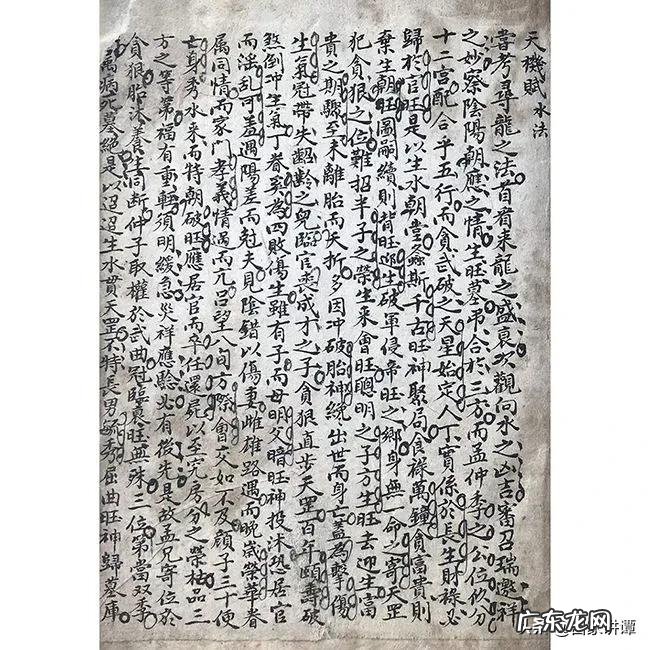 天機賦 水法
嘗考尋龍之法首看來龍之盛衰次觀向水之凶吉審召瑞邀祥
之妙察陰陽朝應之情生旺墓吊合於三方而孟仲季之公位攸分
十二宮配合乎五行而貪武破之天星始定人丁實係於長生財祿必
歸於官旺是以生水朝堂螽斯千古旺神聚局食祿萬鐘貪富貴則
棄生朝旺圖嗣續則背旺迎生破軍侵帝旺之鄉身無一命之寄天罡
犯貪狼之位難招半子之榮生來會旺聰明之子方生旺去迎生富
貴之期驟至未離胎而夭折多因冲破胎神纔出世而身亡蓋為擊傷
生氣冠帶失齠齡之兒臨官喪成才之子貪狼直步天罡百年頤壽破
煞倒冲生氣丁眷奚為四敗傷生雖有子而母明父暗旺神投沐恐居官
而淫亂可羞遇陽差而勉夫見陰錯以傷妻雌雄路遇而晚歲榮華眷
属同情而家門孝義情過而亢呂望八旬方際會交如不及顏子三十便
亡身秀水來而特朝破旺應居官而卒任還屍以生究房分之榮枯品三
方之等第福有重輕須明緩急災祥應驗必有後先是故孟兄寄位於
貪狼胎沐養生同斷仲子取權於武曲冠臨衰旺無殊三位第當双季
局病死墓絕是以迢迢生水貫天罡不特長男毓秀屈曲旺神歸墓庫
广东龙网